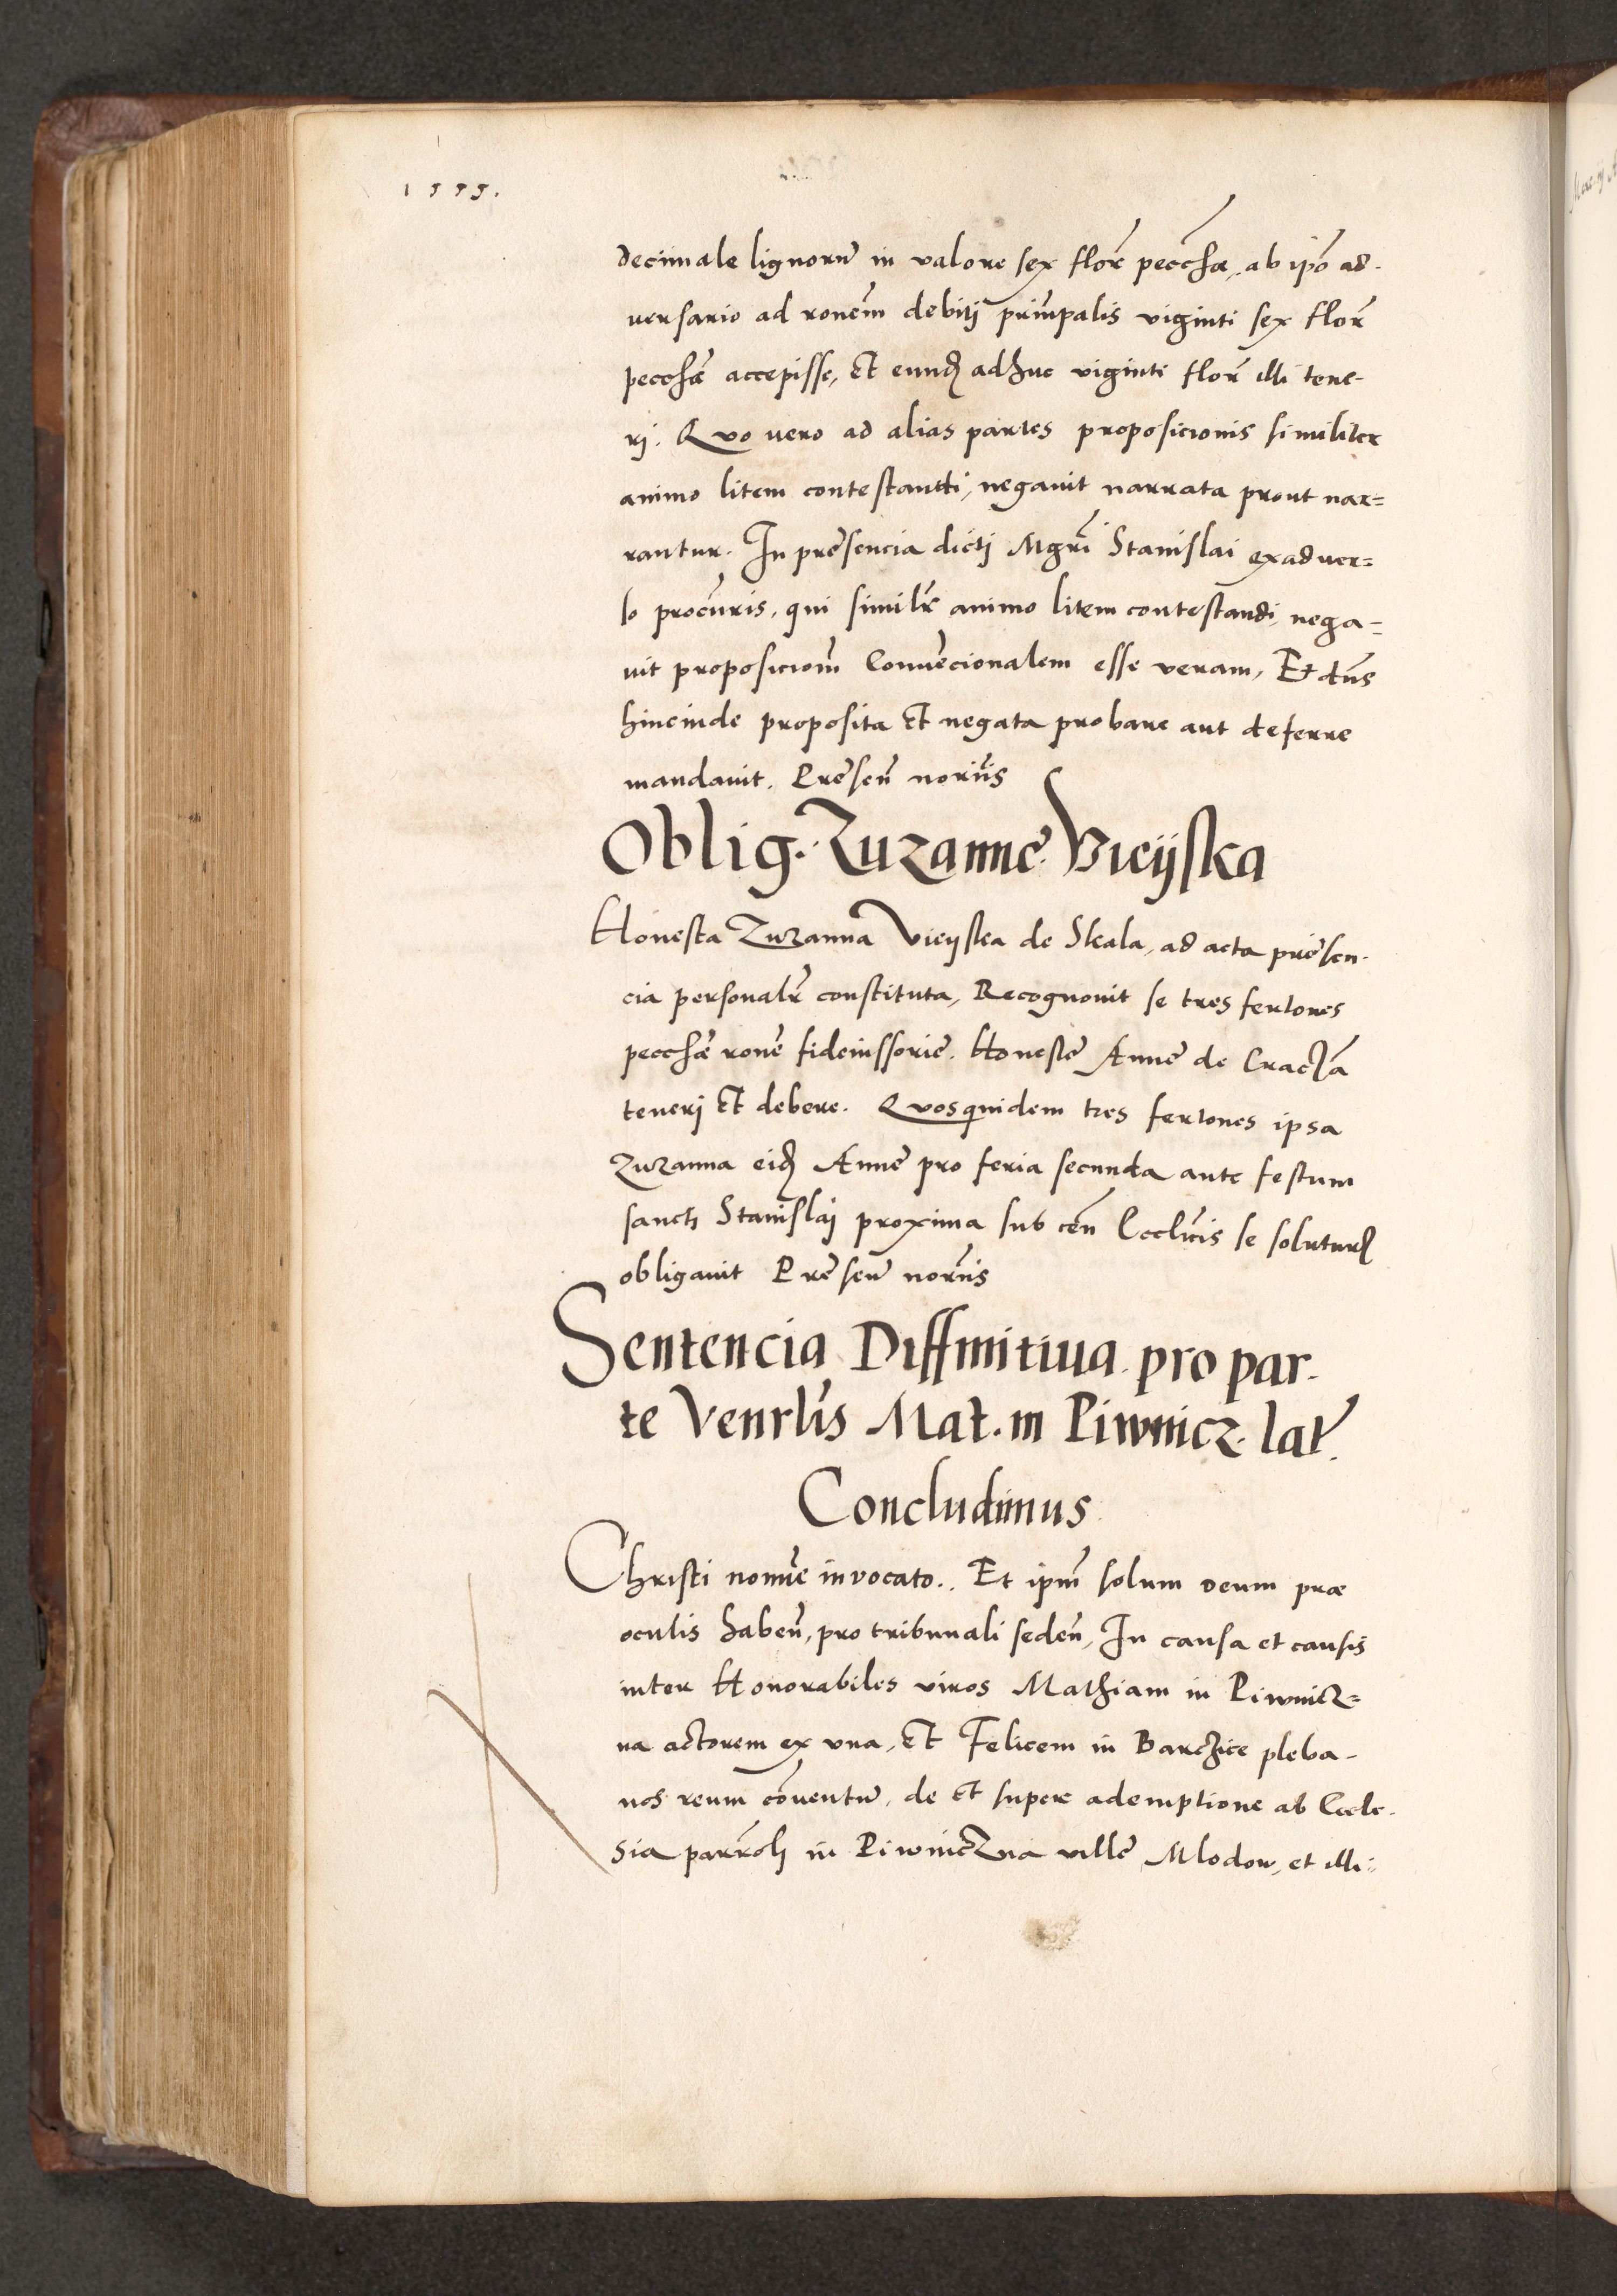 1555.
decimale lignorū in valore sex flor̃ pecc̃hæ, ab ip̃o ad-
uersario ad ronẽm debitj prĩncpalis viginti sex flor̃
pecc̃hæ accepisse, Et eund̃ adhuc viginti flor̃ illi tene-
rj. Quo uero ad alias partes proposicionis similiter
animo litem contestantti, negauit narrata prout nar=
rantur. In presencia dicti Mgrĩ Stanislai exaduer=
so procũris, qui similr̃ animo litem contestandi, nega=
uit proposiciom̃ Conuẽcionalem esse veram, Et dñs
hincinde proposita Et negata probare aut deferre
mandauit. Presen̄ noriĩs
Oblig. Zuzanne Vieijska
Honesta Zuzanna Vieijska de Skala, ad acta presen-
cia personalr̃ constituta, Recognouit se tres fertones
pecc̃hę ronẽ fideiussorię. Honestę Annę de Crac̃ã
tenerj Et debere. Quosquidem tres fertones ipsa
Zuzanna eid̃ Annę pro feria secunda ante festum
sancti Stanislaj proxima sub cen̄ Eccliĉis se soluturã
obligauit Presen̄ norĩis
Sentencia Diffinitiua pro par-
te Venrlĩs Mat. in Piwnicz. lat̃.
Concludimus
Christi nomĩe inuocato. Et ipm̃ solum deum præ
oculis haben̄, pro tribunali seden̄, In causa et causis
inter Honorabiles viros Mathiam in Piwnicz=
na actorem ex vna, Et Felicem in Barczice pleba-
nos reum cõuentū, de Et super ademptione ab Eccle-
sia parrõli in Piwniczna villę Mlodow, et illi=